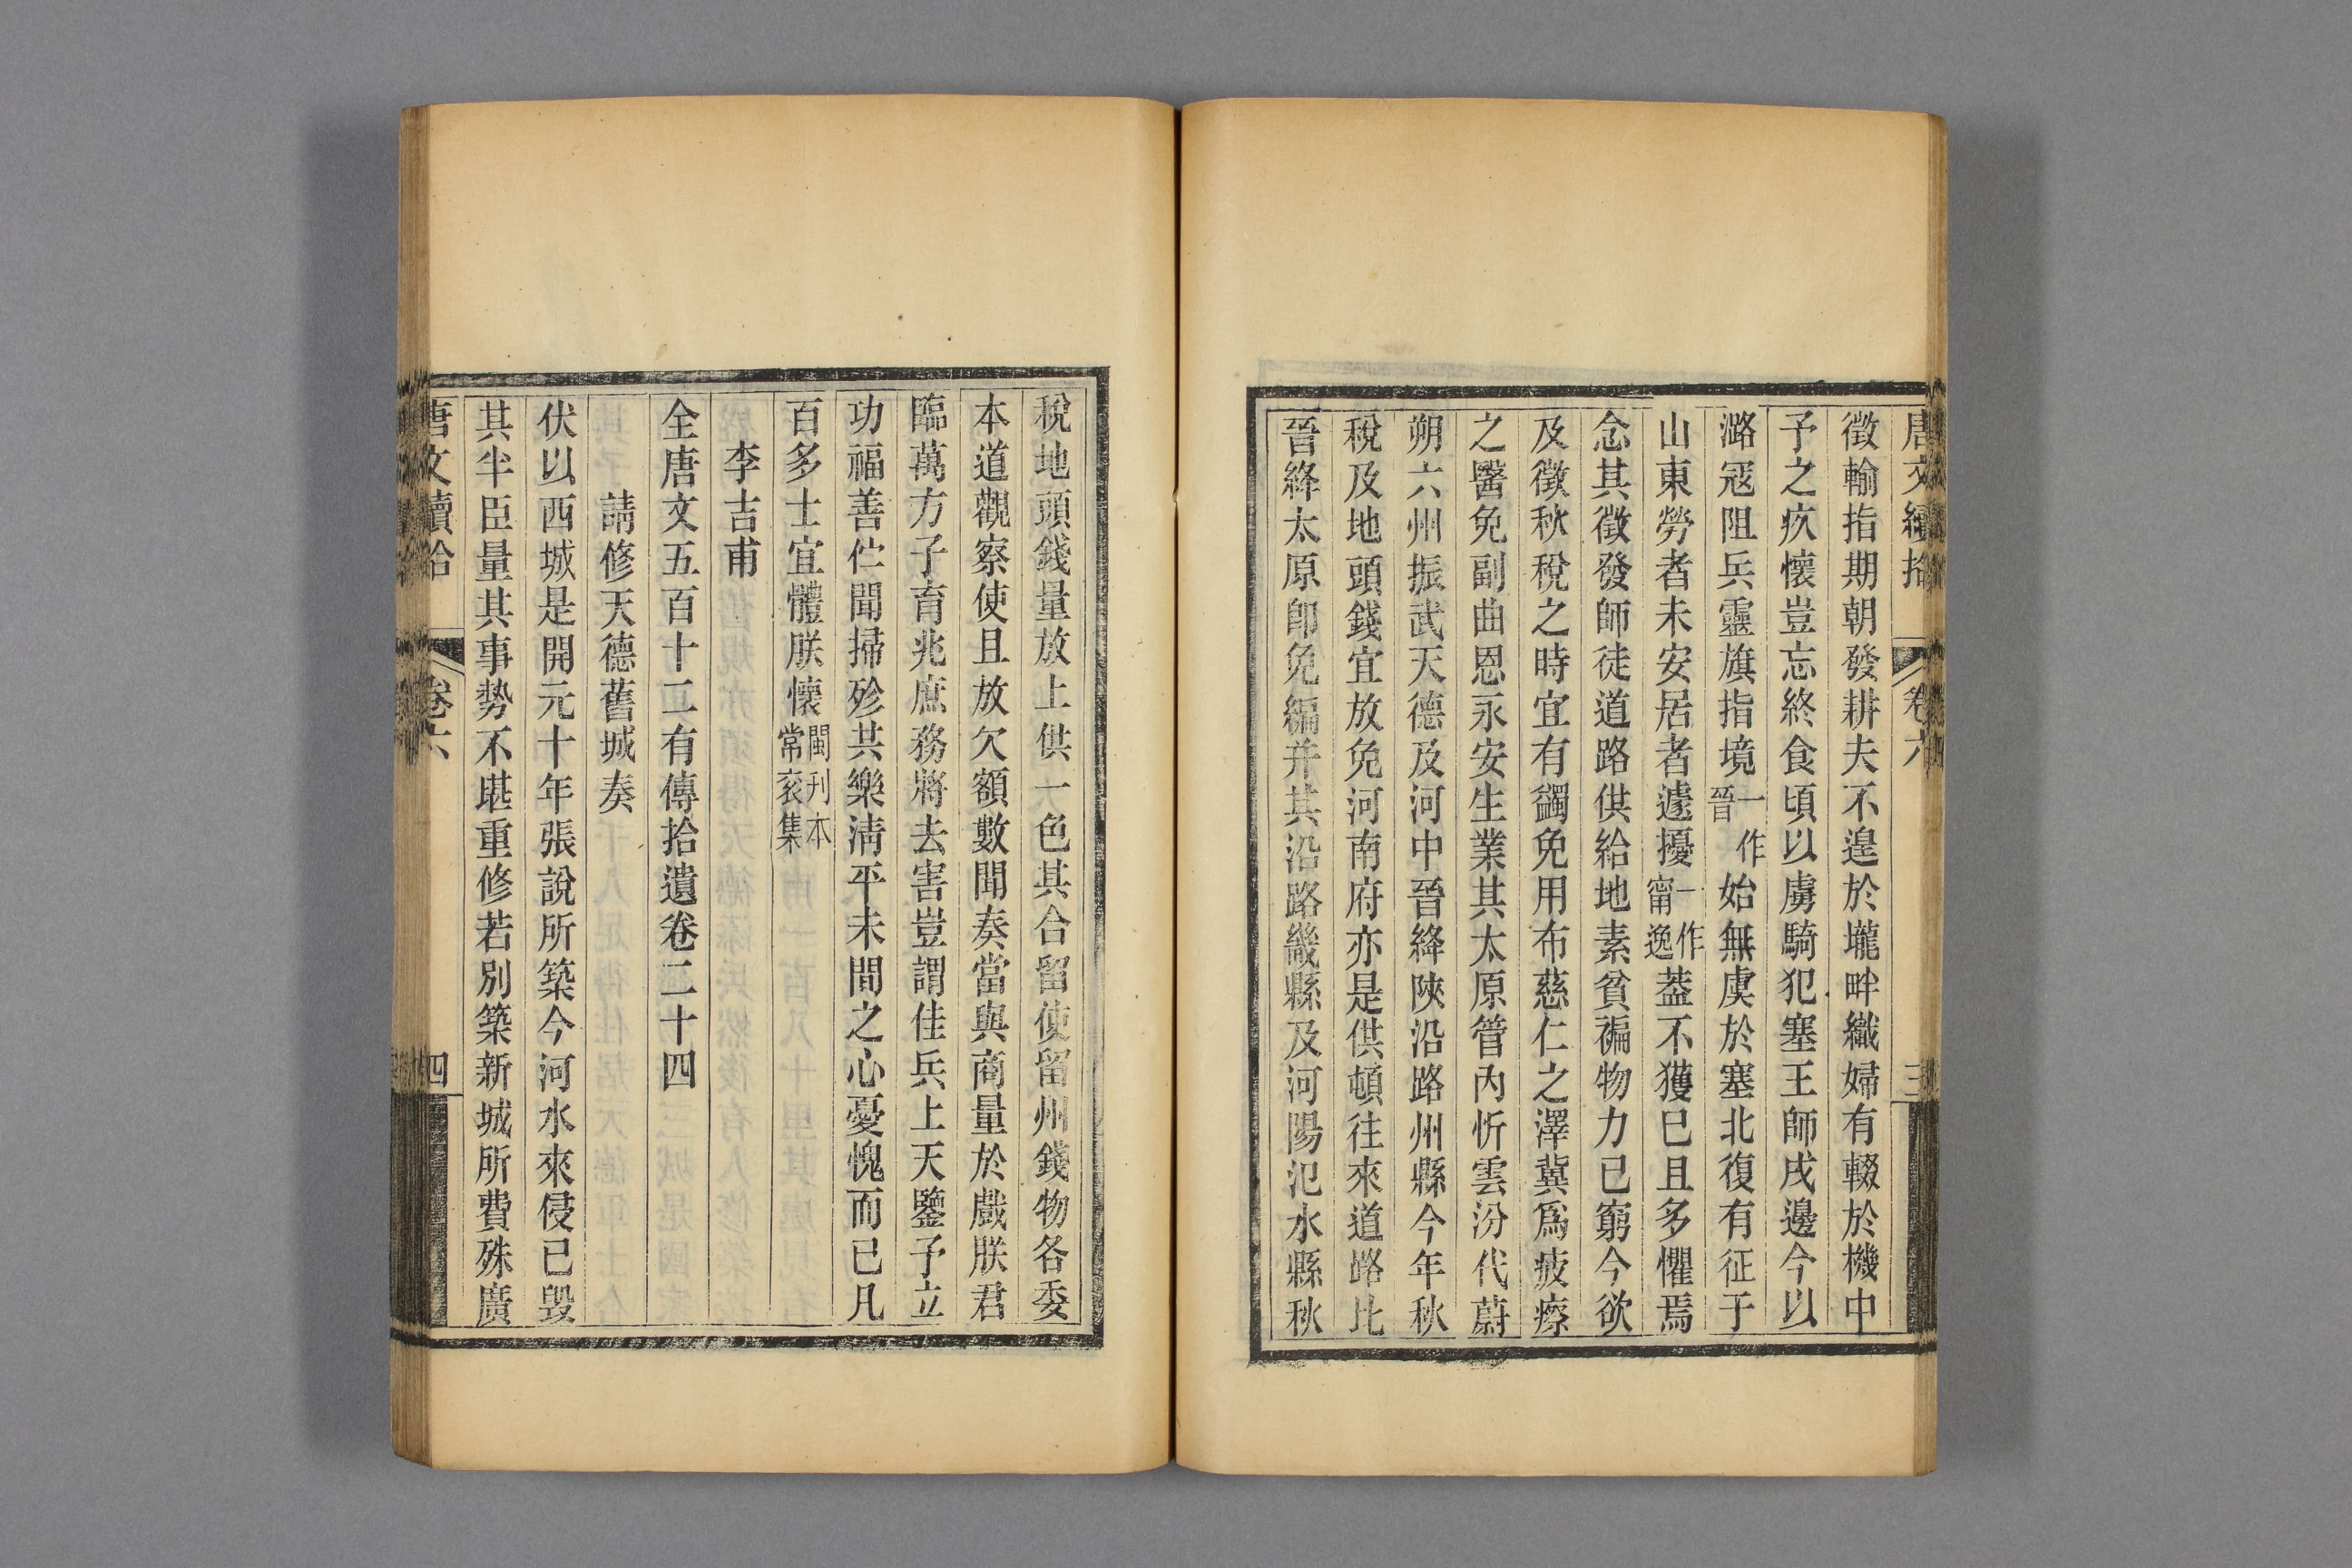 唐文續拾 卷六 三
徵輸指期朝發耕夫不遑於壠畔織婦有輟於機中
予之疚懷豈忘終食頃以虜騎犯塞王師戍邊今以
潞寇阻兵靈旗指境一作晉始無虞於塞北復有征于
山東勞者未安居者遽擾一作甯逸蓋不獲巳且多懼焉
念其徵發師徒道路供給地素貧褊物力已窮今欲
及徵秋稅之時宜有蠲免用布慈仁之澤冀爲疲瘵
之醫免副曲恩永安生業其太原管內忻雲汾代蔚
朔六州振武天德及河中晉絳陝沿路州縣今年秋
稅及地頭錢宜放免河南府亦是供頓往來道路比
晉絳太原卽免編并其沿路畿縣及河陽氾水縣秋
稅地頭錢量放上供一色其合留使留州錢物各委
本道觀察使且放欠額數聞奏當與商量於戲朕君
臨萬方子育兆庶務將去害豈謂佳兵上天鑒予立
功福善伫聞掃殄共樂淸平未間之心憂愧而已凡
百多士宜體朕懷閩刊本常袞集
李吉甫
全唐文五百十二有傳拾遺卷二十四
請修天德舊城奏
伏以西城是開元十年張說所築今河水來侵已毀
其半臣量其事勢不堪重修若別築新城所費殊廣
唐文續拾 卷六 四